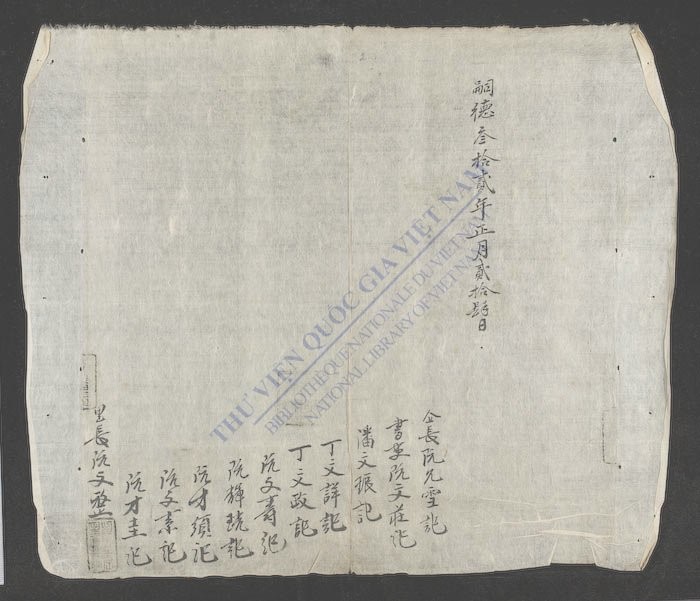 嗣德叁拾貳年正月貳拾肆日
仝長阮久雪記
書吏阮文莊記
潘文振記
丁文詳記
丁文政記
阮文壽記
阮輝琉記
阮才須記
阮文素記
阮才圭記
里長阮文整
THƯ VIỆN QUỐC GIA VIỆT NAM
BIBLIOTHÈQUE NATIONALE DU VIETNAM
NATIONAL LIBRARY OF VIETNAM